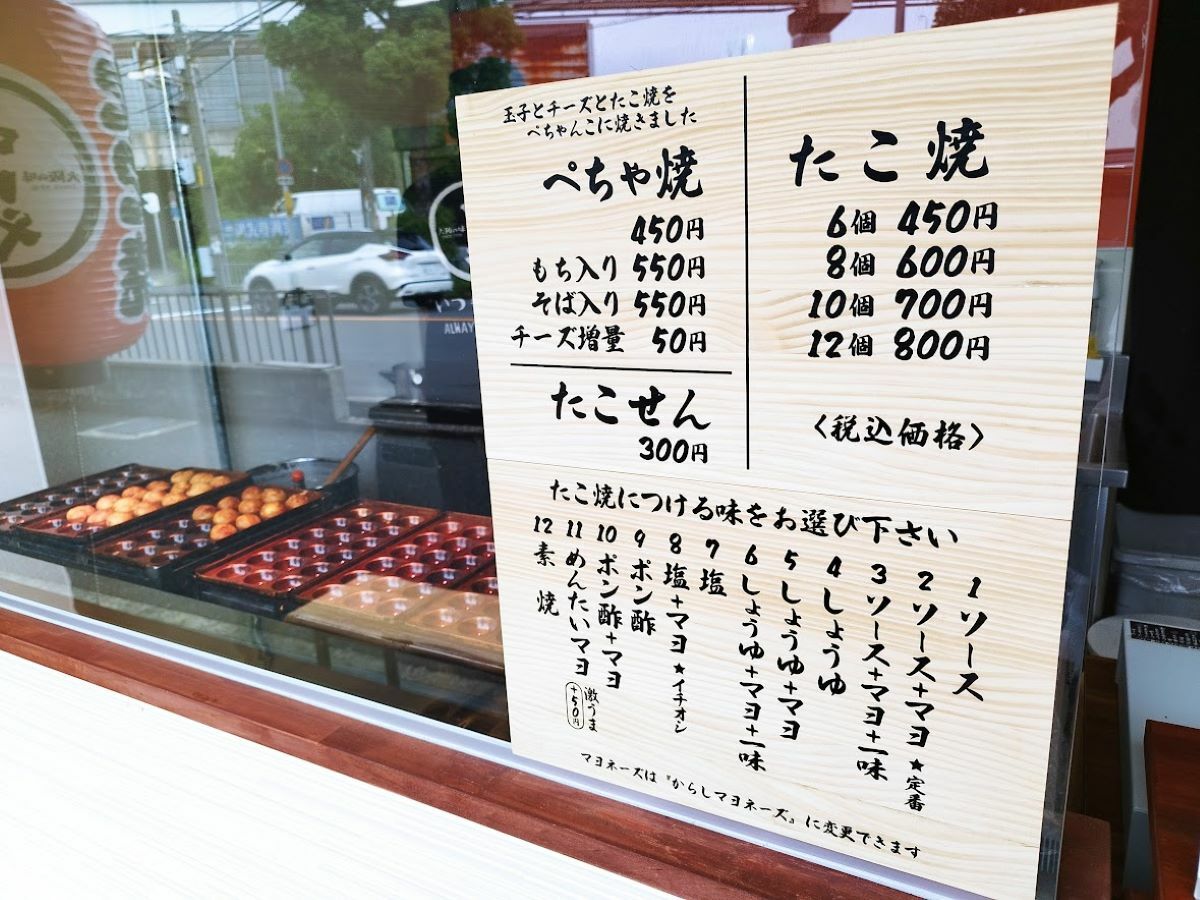 たこ焼
6個 450円
8個 600円
10個 700円
12個 800円
〈税込価格〉
玉子とチーズとたこ焼を
ぺちゃんこに焼きました
ぺちゃ焼
450円
もち入り 550円
そば入り 550円
チーズ増量 50円
たこせん
300円
たこ焼につける味をお選び下さい
1 ソース
2 ソース+マヨ ★定番
3 ソース+マヨ+一味
4 しょうゆ
5 しょうゆ+マヨ
6 しょうゆ+マヨ+一味
7 塩
8 塩+マヨ ★イチオシ
9 ポン酢
10 ポン酢+マヨ
11 めんたいマヨ 激うま +50円
12 素焼
マヨネーズは『からしマヨネーズ』に変更できます
ALWAY